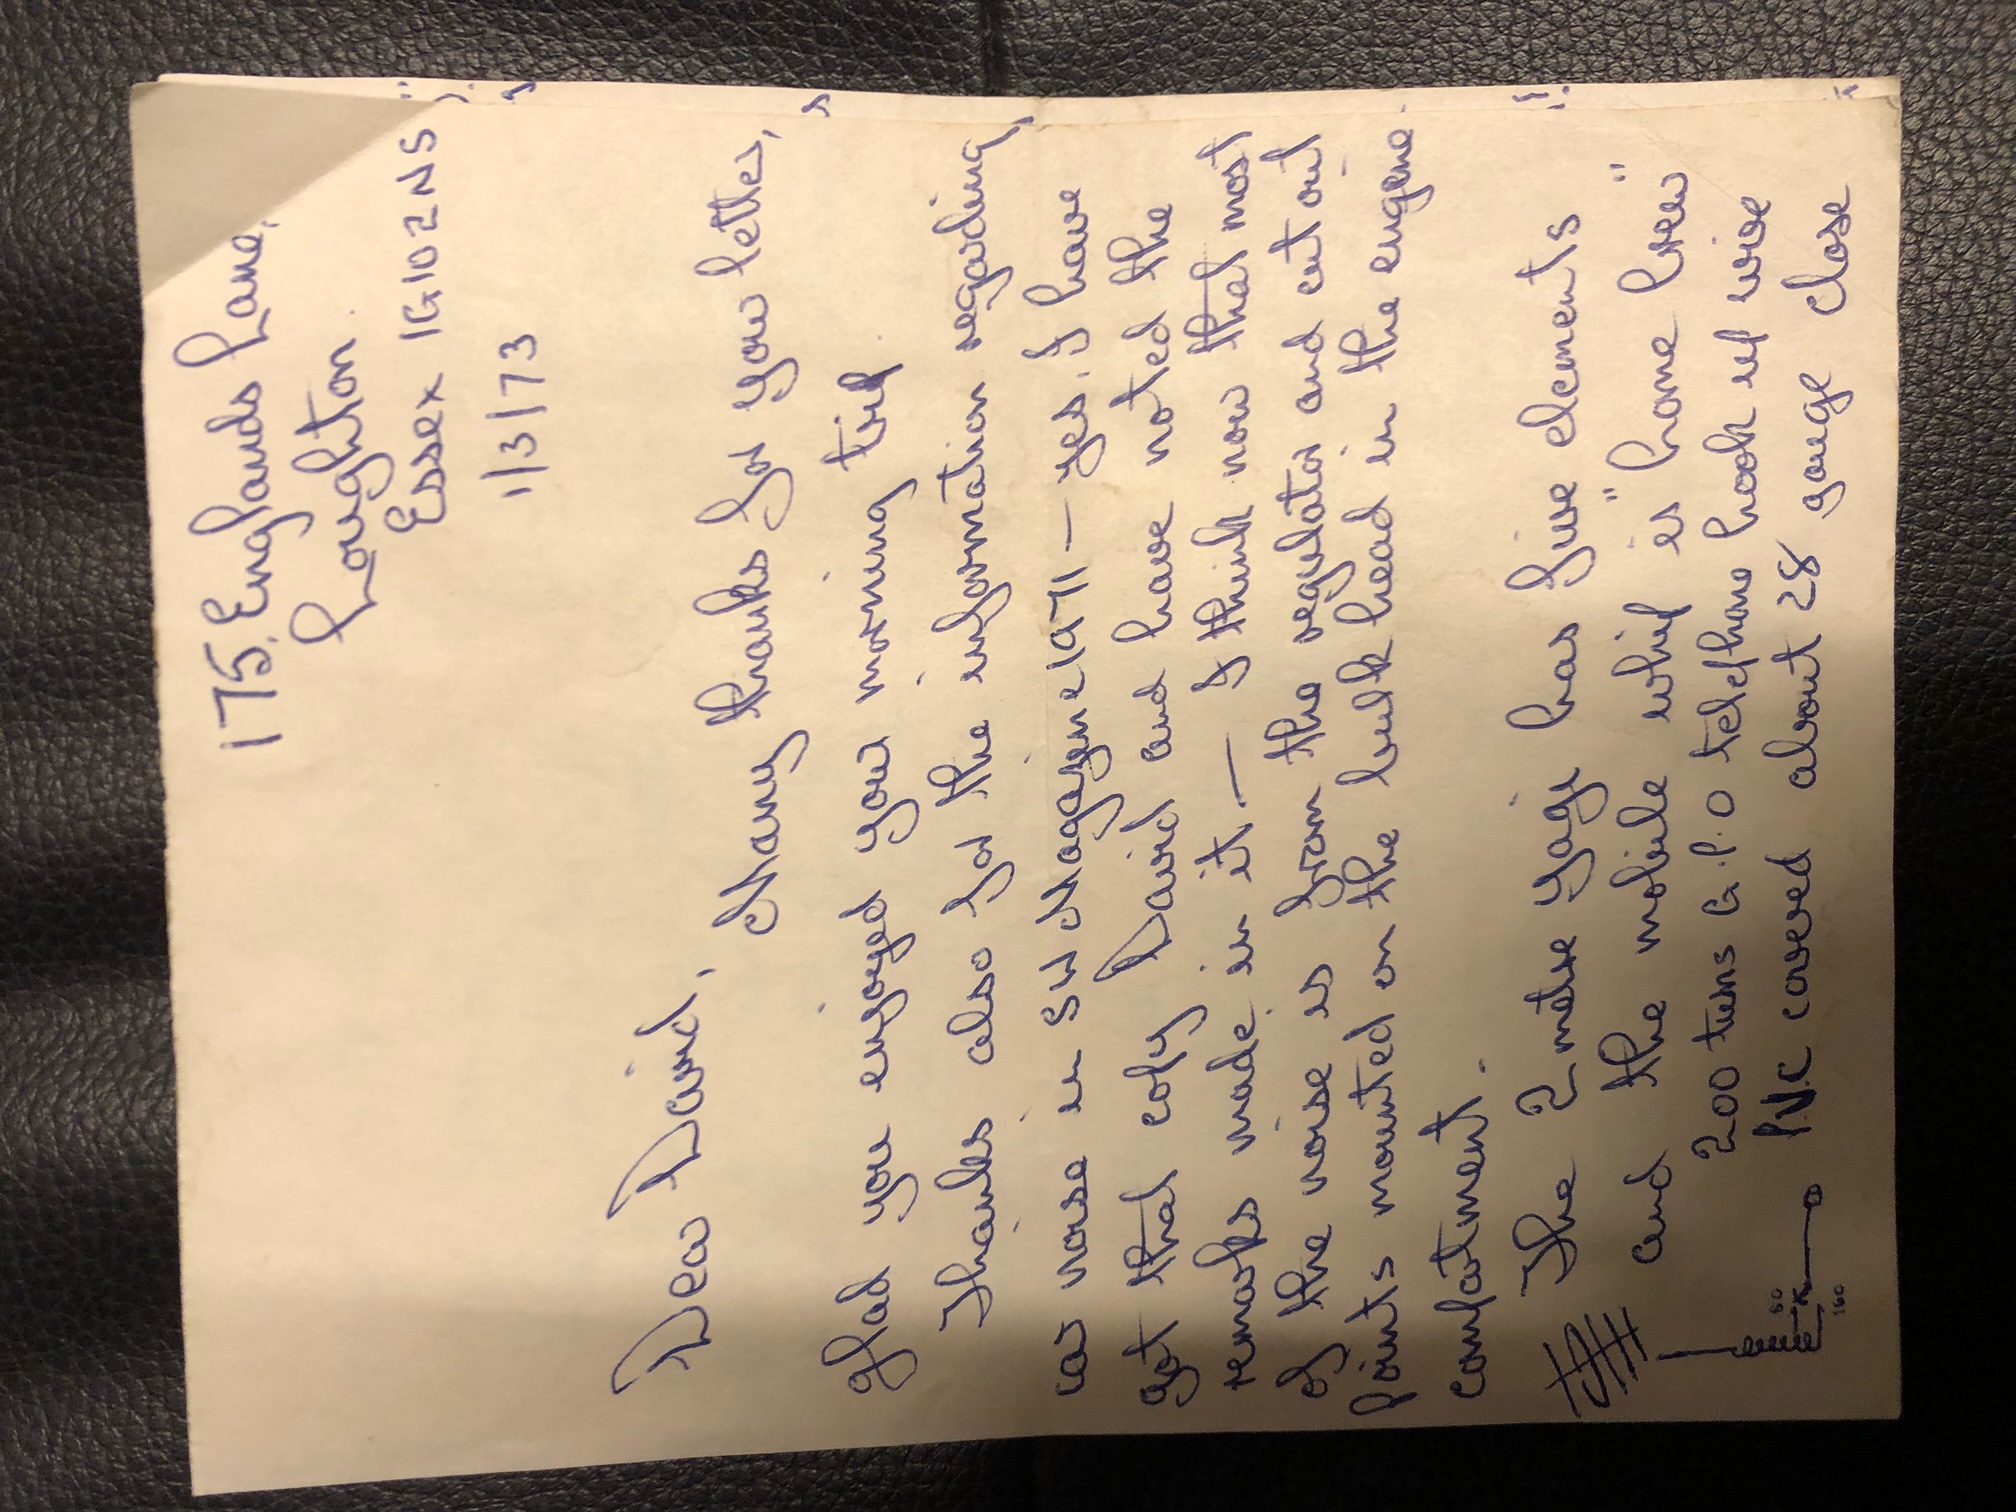 175, Englands Lane,
Loughton.
Essex IG10 2NS
1/3/73
Dear David,
Many thanks for your letter,
glad you enjoyed your morning trip.
Thanks also for the information regarding
car noise in SW Magazine 1971 — yes, I have
got that copy David and have noted the
remarks made in it. — I think now that most
of the noise is from the regulator and cut out
points mounted on the bulk head in the engine
compartment.
The 2 metre yagi has five elements
and the mobile whip is "home brew"
200 turns G.P.O telephone hook up wire
PVC covered about 28 gauge close
80
160